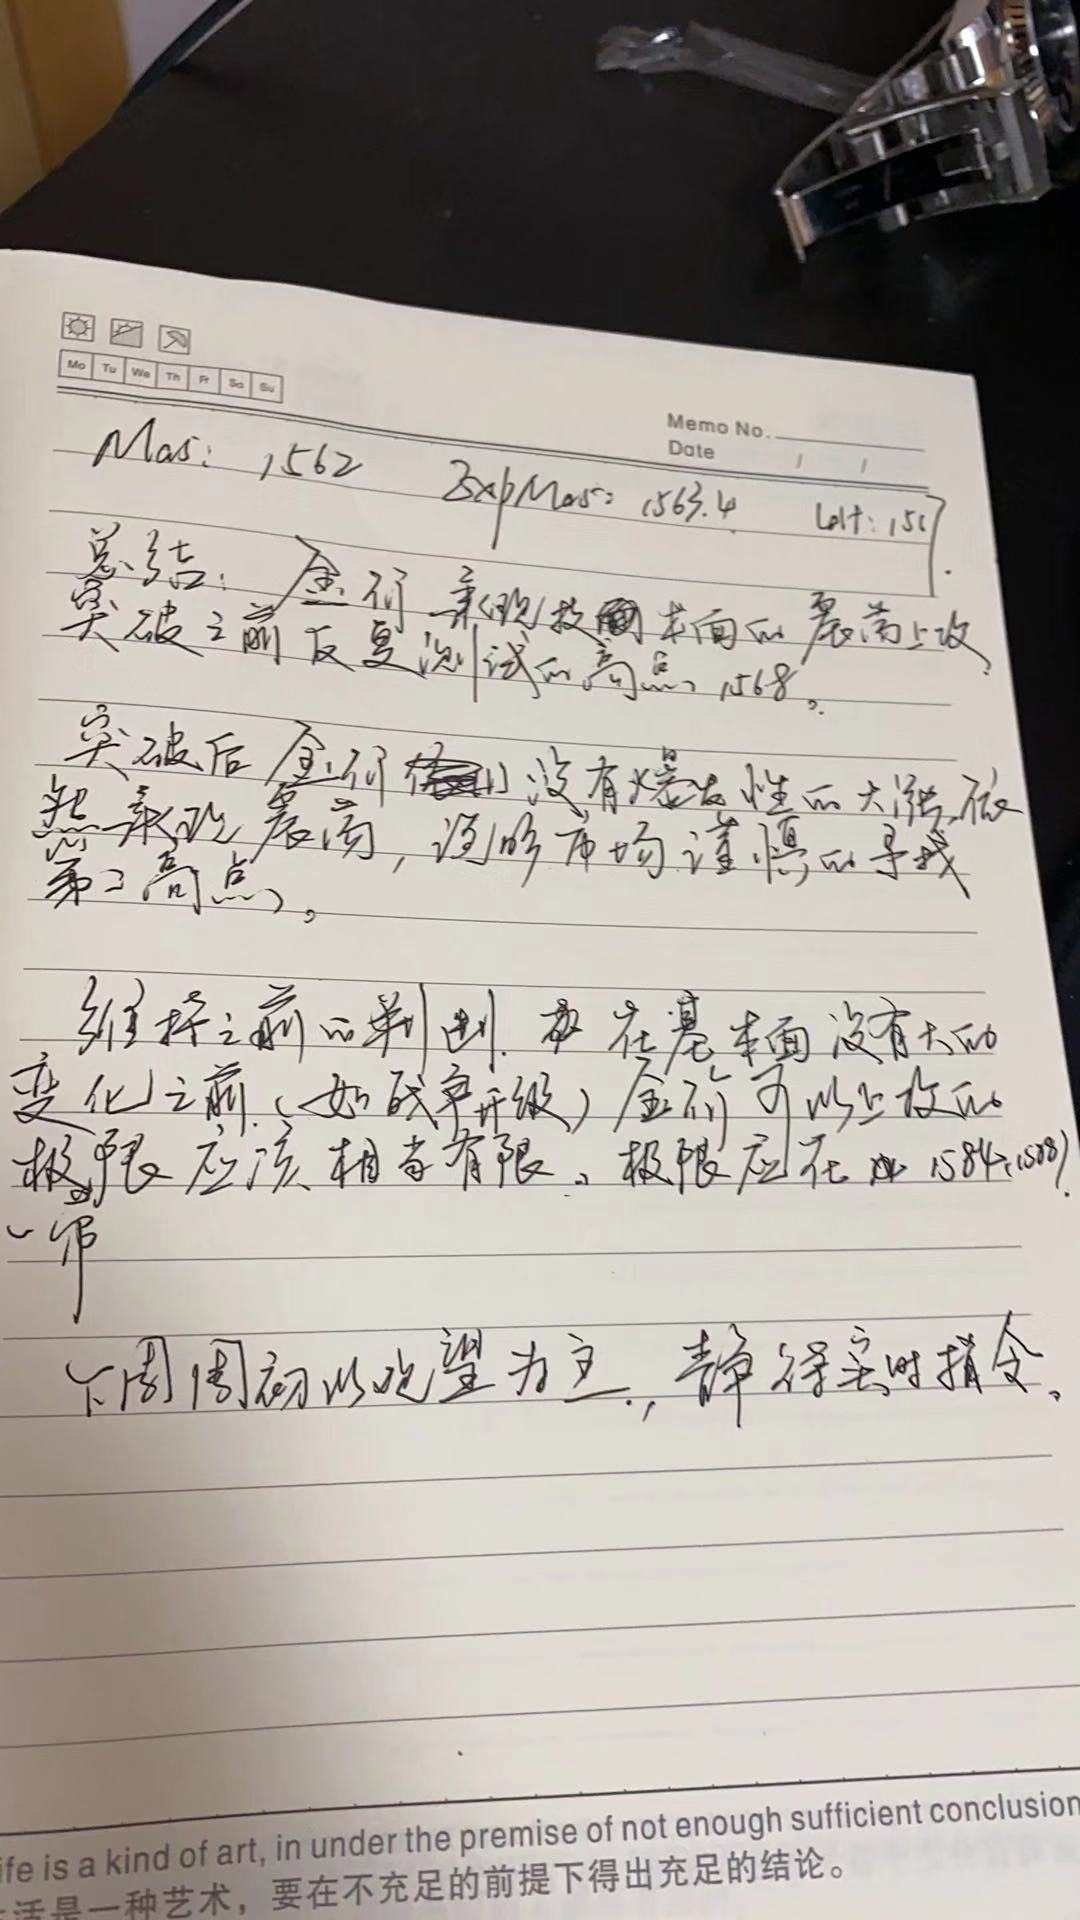 Mo Tu We Th Fr Sa Su
Memo No.
Date / /
Mas: 1562 ExpMas: 1563.4
总结: 金价表现技术面的震荡上攻,
突破之前反复测试的高点, 1568。
突破后金价没有爆发性的大涨,依
然表现震荡, 说明市场谨慎的寻找
第二高点。
维持之前的判断. 在基本面没有大的
变化之前,(如战争升级)金价可以上攻的
极限应该相当有限。极限应在1584,(1588)
一带
下周周初以观望为主, 静待实时指令.
ife is a kind of art, in under the premise of not enough sufficient conclusion
活是一种艺术，要在不充足的前提下得出充足的结论。